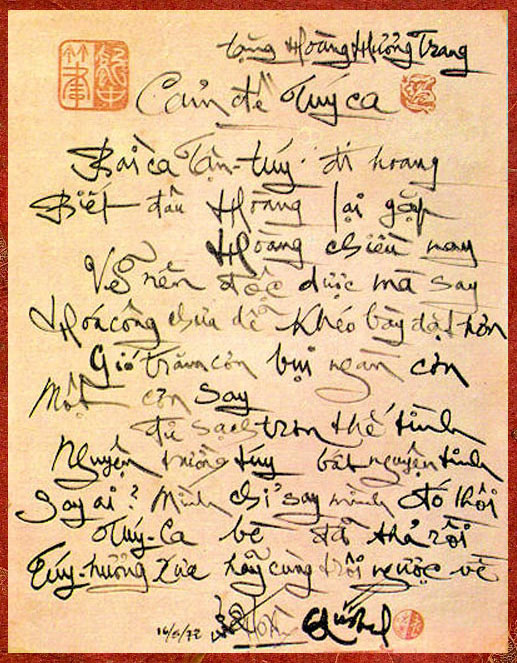 tặng Hoàng Hương Trang
Cảm đề Túy ca
Bài ca Tận-túy đi hoang
Biết đâu Hoàng lại gặp
Hoàng chiều nay
Vẽ nên độc dược mà say
Hóa công chưa dễ khéo bày đặt hơn
Gió trăng còn bụi ngàn còn
Một cơn say
đủ sạch trơn thế tình
Nguyện trường túy bất nguyện tỉnh
Say ai? Mình chỉ say mình đó thôi
Túy-Ca bè đã thả rồi
Túy-hương xưa hãy cùng trôi ngược về